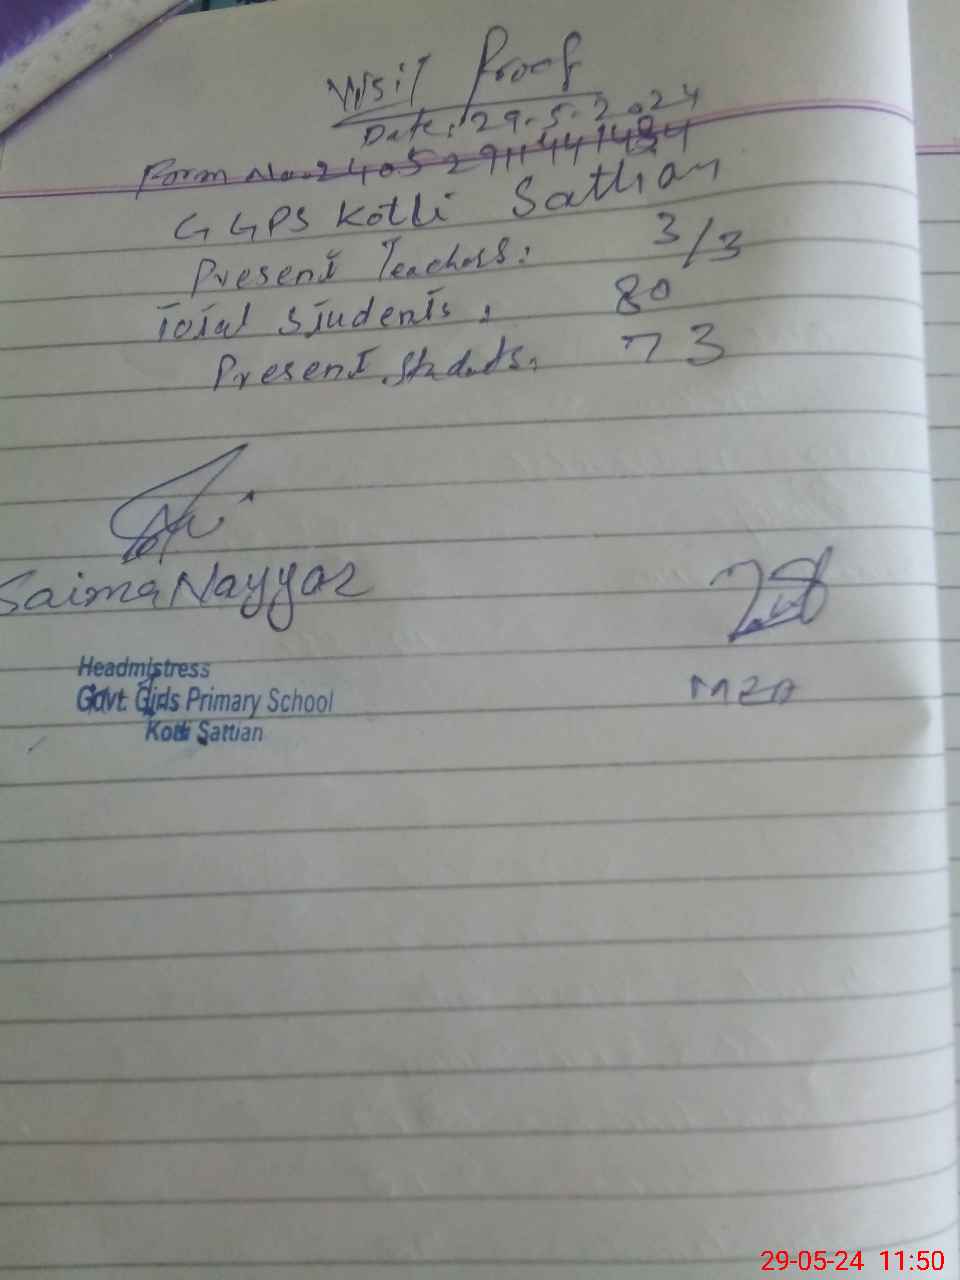 Visit Proof
Date: 29.5.2024
Form No.
GGPS Kotli Sathan
Present Teachers: 3/3
Total Students: 80
Present Students: 73
Saima Nayyar
Headmistress
Govt. Girls Primary School
Kotli Sattian
29-05-24 11:50